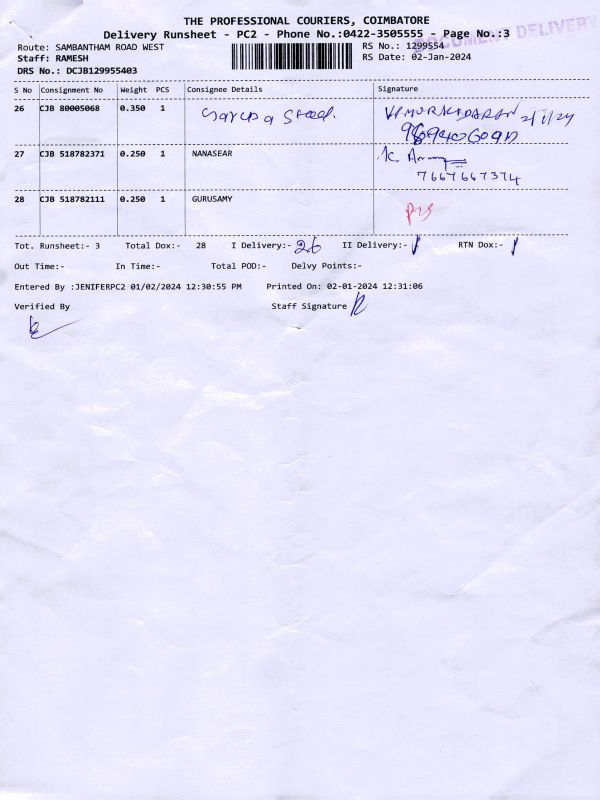 THE PROFESSIONAL COURIERS, COIMBATORE
DOCUMENT DELIVERY
Delivery Runsheet - PC2 - Phone No.:0422-3505555 - Page No.:3
Route: SAMBANTHAM ROAD WEST
RS No.: 1299554
Staff: RAMESH
RS Date: 02-Jan-2024
DRS No.: DCJB129955403
S No Consignment No Weight PCS Consignee Details Signature
26 CJB 80005068 0.350 1 2/1/24
27 CJB 518782371 0.250 1 NANASEAR
7667667374
28 CJB 518782111 0.250 1 GURUSAMY
Tot. Runsheet:- 3 Total Dox:- 28 I Delivery:- 26 II Delivery:- 1 RTN Dox:- 1
Out Time:- In Time:- Total POD:- Delvy Points:-
Entered By :JENIFERPC2 01/02/2024 12:30:55 PM Printed On: 02-01-2024 12:31:06
Verified By Staff Signature